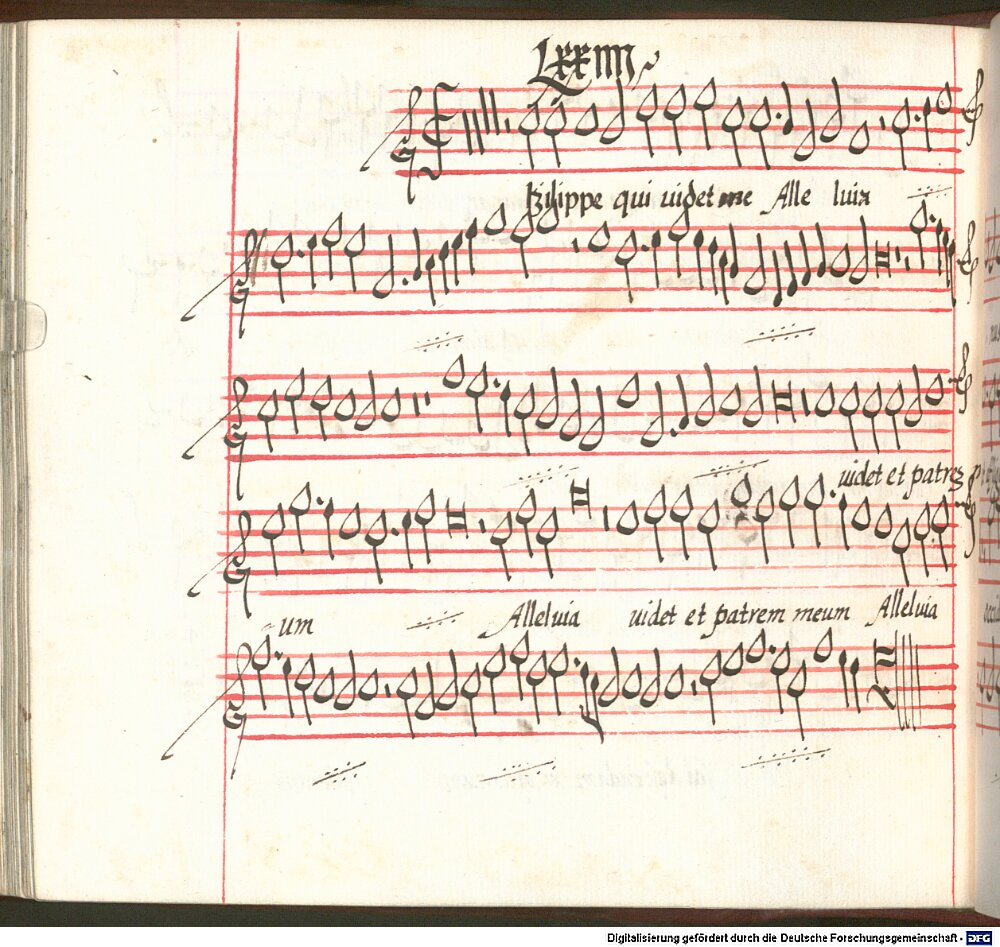 Lxxiiii
Philippe qui uidet me Alle luia
uidet et patrem
um Alleluia uidet et patrem meum Alleluia
Digitalisierung gefördert durch die Deutsche Forschungsgemeinschaft - DFG